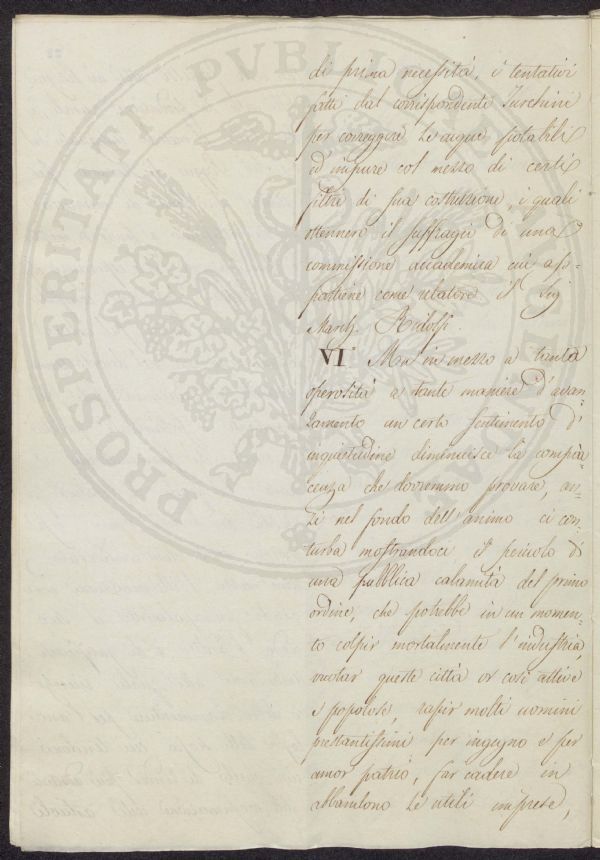 di prima necessità, i tentativi
fatti dal corrispondente Turchini
per correggere le acque potabili
ed impure col mezzo di certi
filtri di sua costruzione, i quali
ottennero il suffragio di una
commissione accademica cui ap=
partiene come relatore il Sig
March. Ridolfi.
VI° Ma in mezzo a tanta
operosità a tante maniere d'avan=
zamento un certo sentimento d'
inquietudine diminuisce la compia=
cenza che dovremmo provare, an=
zi nel fondo dell'animo ci con=
turba mostrandoci il pericolo di
una pubblica calamità del primo
ordine, che potrebbe in un momen=
to colpir mortalmente l'industria,
vuotar queste città or così attive
e popolose, rapir molti uomini
prestantissimi per ingegno e per
amor patrio, far cadere in
abbandono le utili imprese,
PROSPERITATI PVBLICAE AVGENDAE